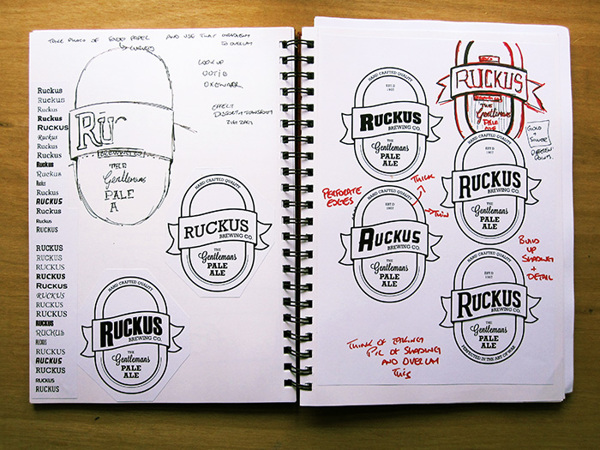 AND USE THAT
TO OVERLAY
LOOK UP
EFFECT
Ruckus
Ruckus
Ruckus
Ruckus
RUCKUS
Ruckus
Ruckus
Ruckus
Ruckus
Ruckus
Ruckus
Ruckus
RUCKUS
Ruckus
Ruckus
Ruckus
RU
THE
Gentlemans
PALE
A
HAND CRAFTED QUALITY
ESTD
RUCKUS
BREWING CO.
THE
Gentlemans
PALE
ALE
RUCKUS
RUCKUS
RUCKUS
RUCKUS
RUCKUS
RUCKUS
RUCKUS
RUCKUS
RUCKUS
RUCKUS
RUCKUS
RUCKUS
RUCKUS
RUCKUS
HAND CRAFTED QUALITY
RUCKUS
BREWING CO.
THE
Gentlemans
PALE
ALE
HAND CRAFTED QUALITY
ESTD
RUCKUS
BREWING CO.
THE
Gentlemans
PALE
ALE
RUCKUS
THE
Gentlemans
PALE
ALE
GOLD
+
SILVER
PERFORATE
EDGES
THICK
THIN
HAND CRAFTED QUALITY
ESTD
RUCKUS
BREWING CO.
THE
Gentlemans
PALE
ALE
HAND CRAFTED QUALITY
ESTD
RUCKUS
BREWING CO.
THE
Gentlemans
PALE
ALE
BUILD
UP
SHADING
+
DETAIL
HAND CRAFTED QUALITY
ESTD
RUCKUS
BREWING CO.
THE
Gentlemans
PALE
ALE
PERFECTED IN THE ART OF BEER
THINK OF TAKING
PIC OF SHADING
AND OVERLAY
THIS